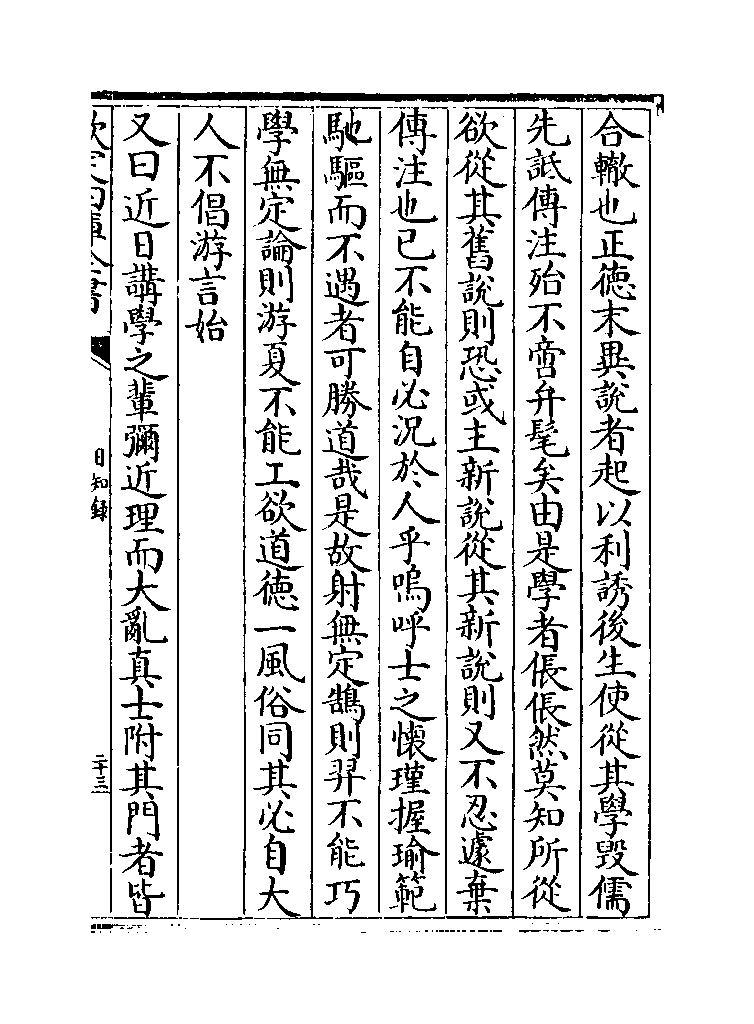 合轍也正德末異說者起以利誘後生使從其學毀儒
先詆傳注殆不啻弁髦矣由是學者倀倀然莫知所從
欲從其舊說則恐或主新說從其新說則又不忍遽棄
傳注也已不能自必況於人乎嗚呼士之懷瑾握瑜範
馳驅而不遇者可勝道哉是故射無定鵠則羿不能巧
學無定論則游夏不能工欲道德一風俗同其必自大
人不倡游言始
又曰近日講學之輩彌近理而大亂真士附其門者皆
欽定四庫全書
日知錄
二十三